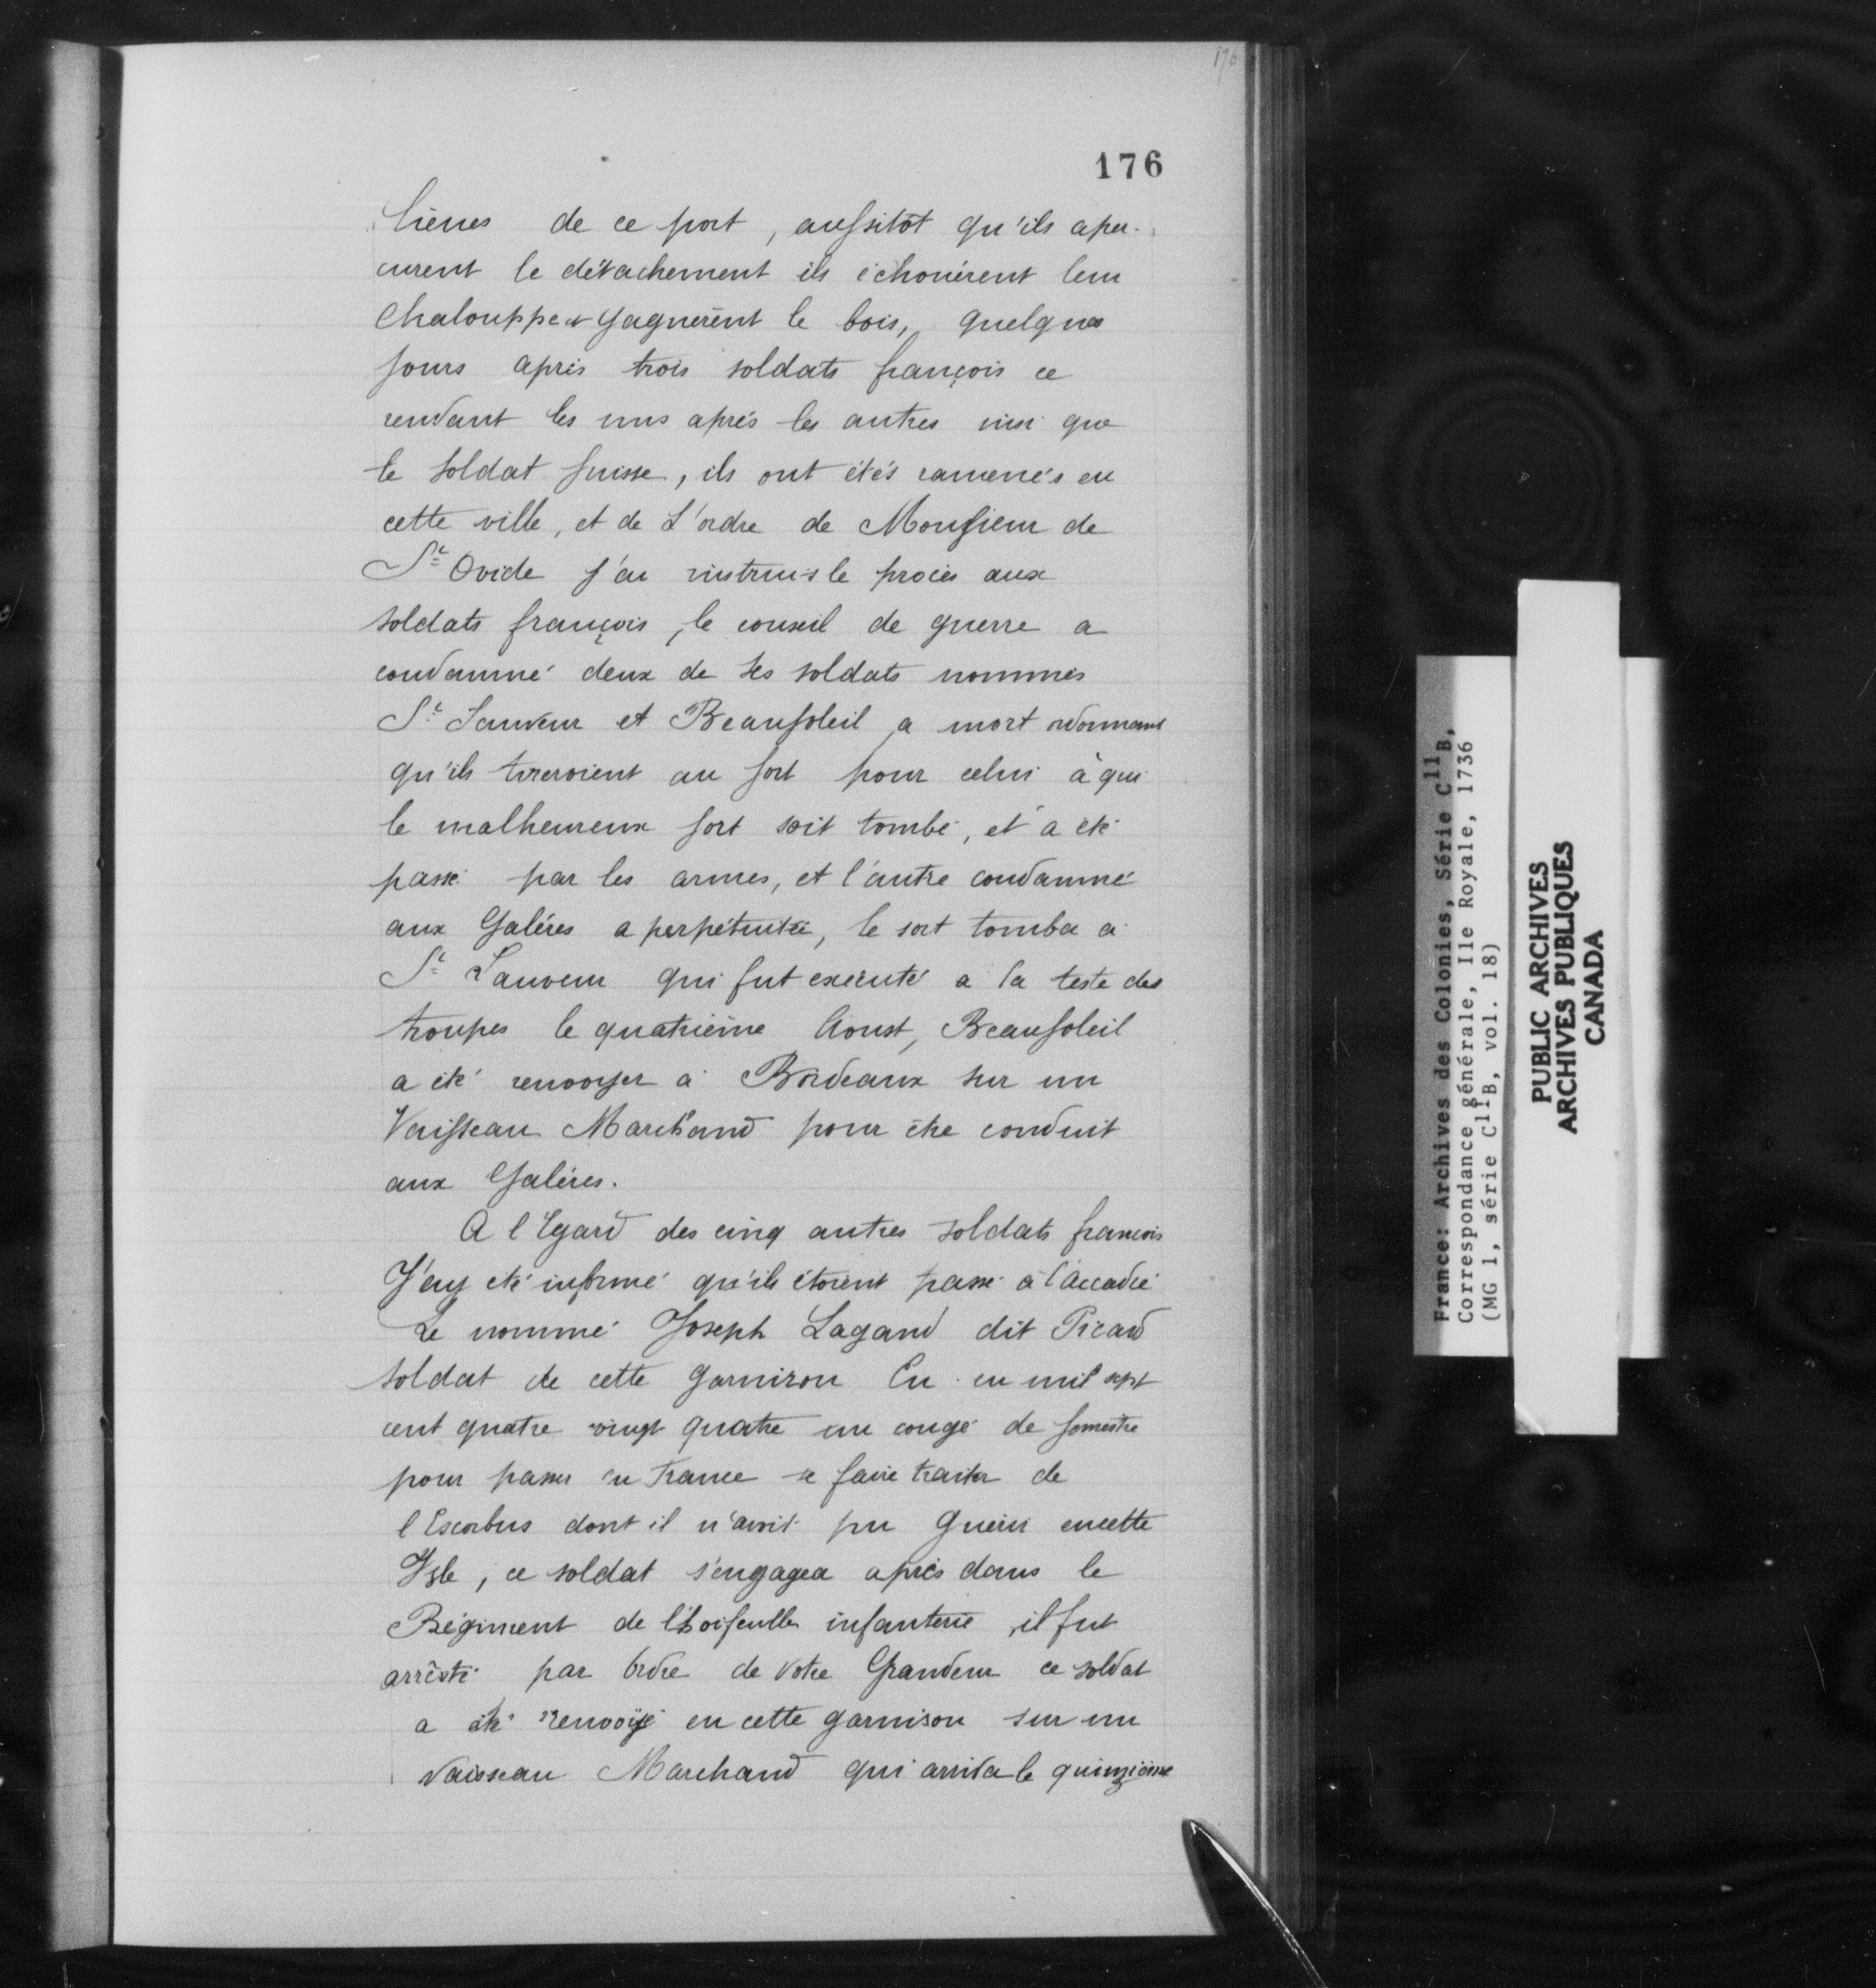 176
lieues de ce port, aussitôt qu'ils aper-
curent le détachement ils échouérent leur
Chalouppe et gagnerent le bois, quelques
jours aprés trois soldats françois ce
rendant les uns aprés les autres insi que
le soldat suisse, ils ont étés ramenés en
cette ville, et de L'ordre de Monsieur de
St Ovide j'ai instruis le procès aux
soldats françois, le conseil de guerre a
condamné deux de ses soldats nommés
St Sauveur et Beausoleil a mort ordonnant
qu'ils tireroient au sort pour celui à qui
le malheureux sort soit tombé, et a été
passé par les armes, et l'autre condamné
aux Galéres a perpétuité, le sort tomba a
St Sauveur qui fut executé a la teste des
troupes le quatriéme Aoust, Beausoleil
a été renvoyer à Bordeaux sur un
Vaisseau Marchand pour être conduit
aux Galéres.
A l'Egard des cinq autres soldats francois
J'ay eté informé qu'ils étoient passé à l'Accadie
Le nommé Joseph Lagand dit Picard
soldat de cette garnison Eu en mil sept
cent quatre vingt quatre un congé de semestre
pour passer en France se faire traiter de
l'Escorbus dont il n'avoit pu guérir encette
Isle, ce soldat s'engagea après dans le
Régiment de infanterie, il fut
arrêsté par Ordre de Votre Grandeur ce soldat
a été renvoÿé en cette garnison sur un
Vaisseau Marchand qui arriva le quinziéme
France: Archives des Colonies, Série C11B,
Correspondance générale, Ile Royale, 1736
(MG 1, série C11B, vol. 18)
PUBLIC ARCHIVES
ARCHIVES PUBLIQUES
CANADA